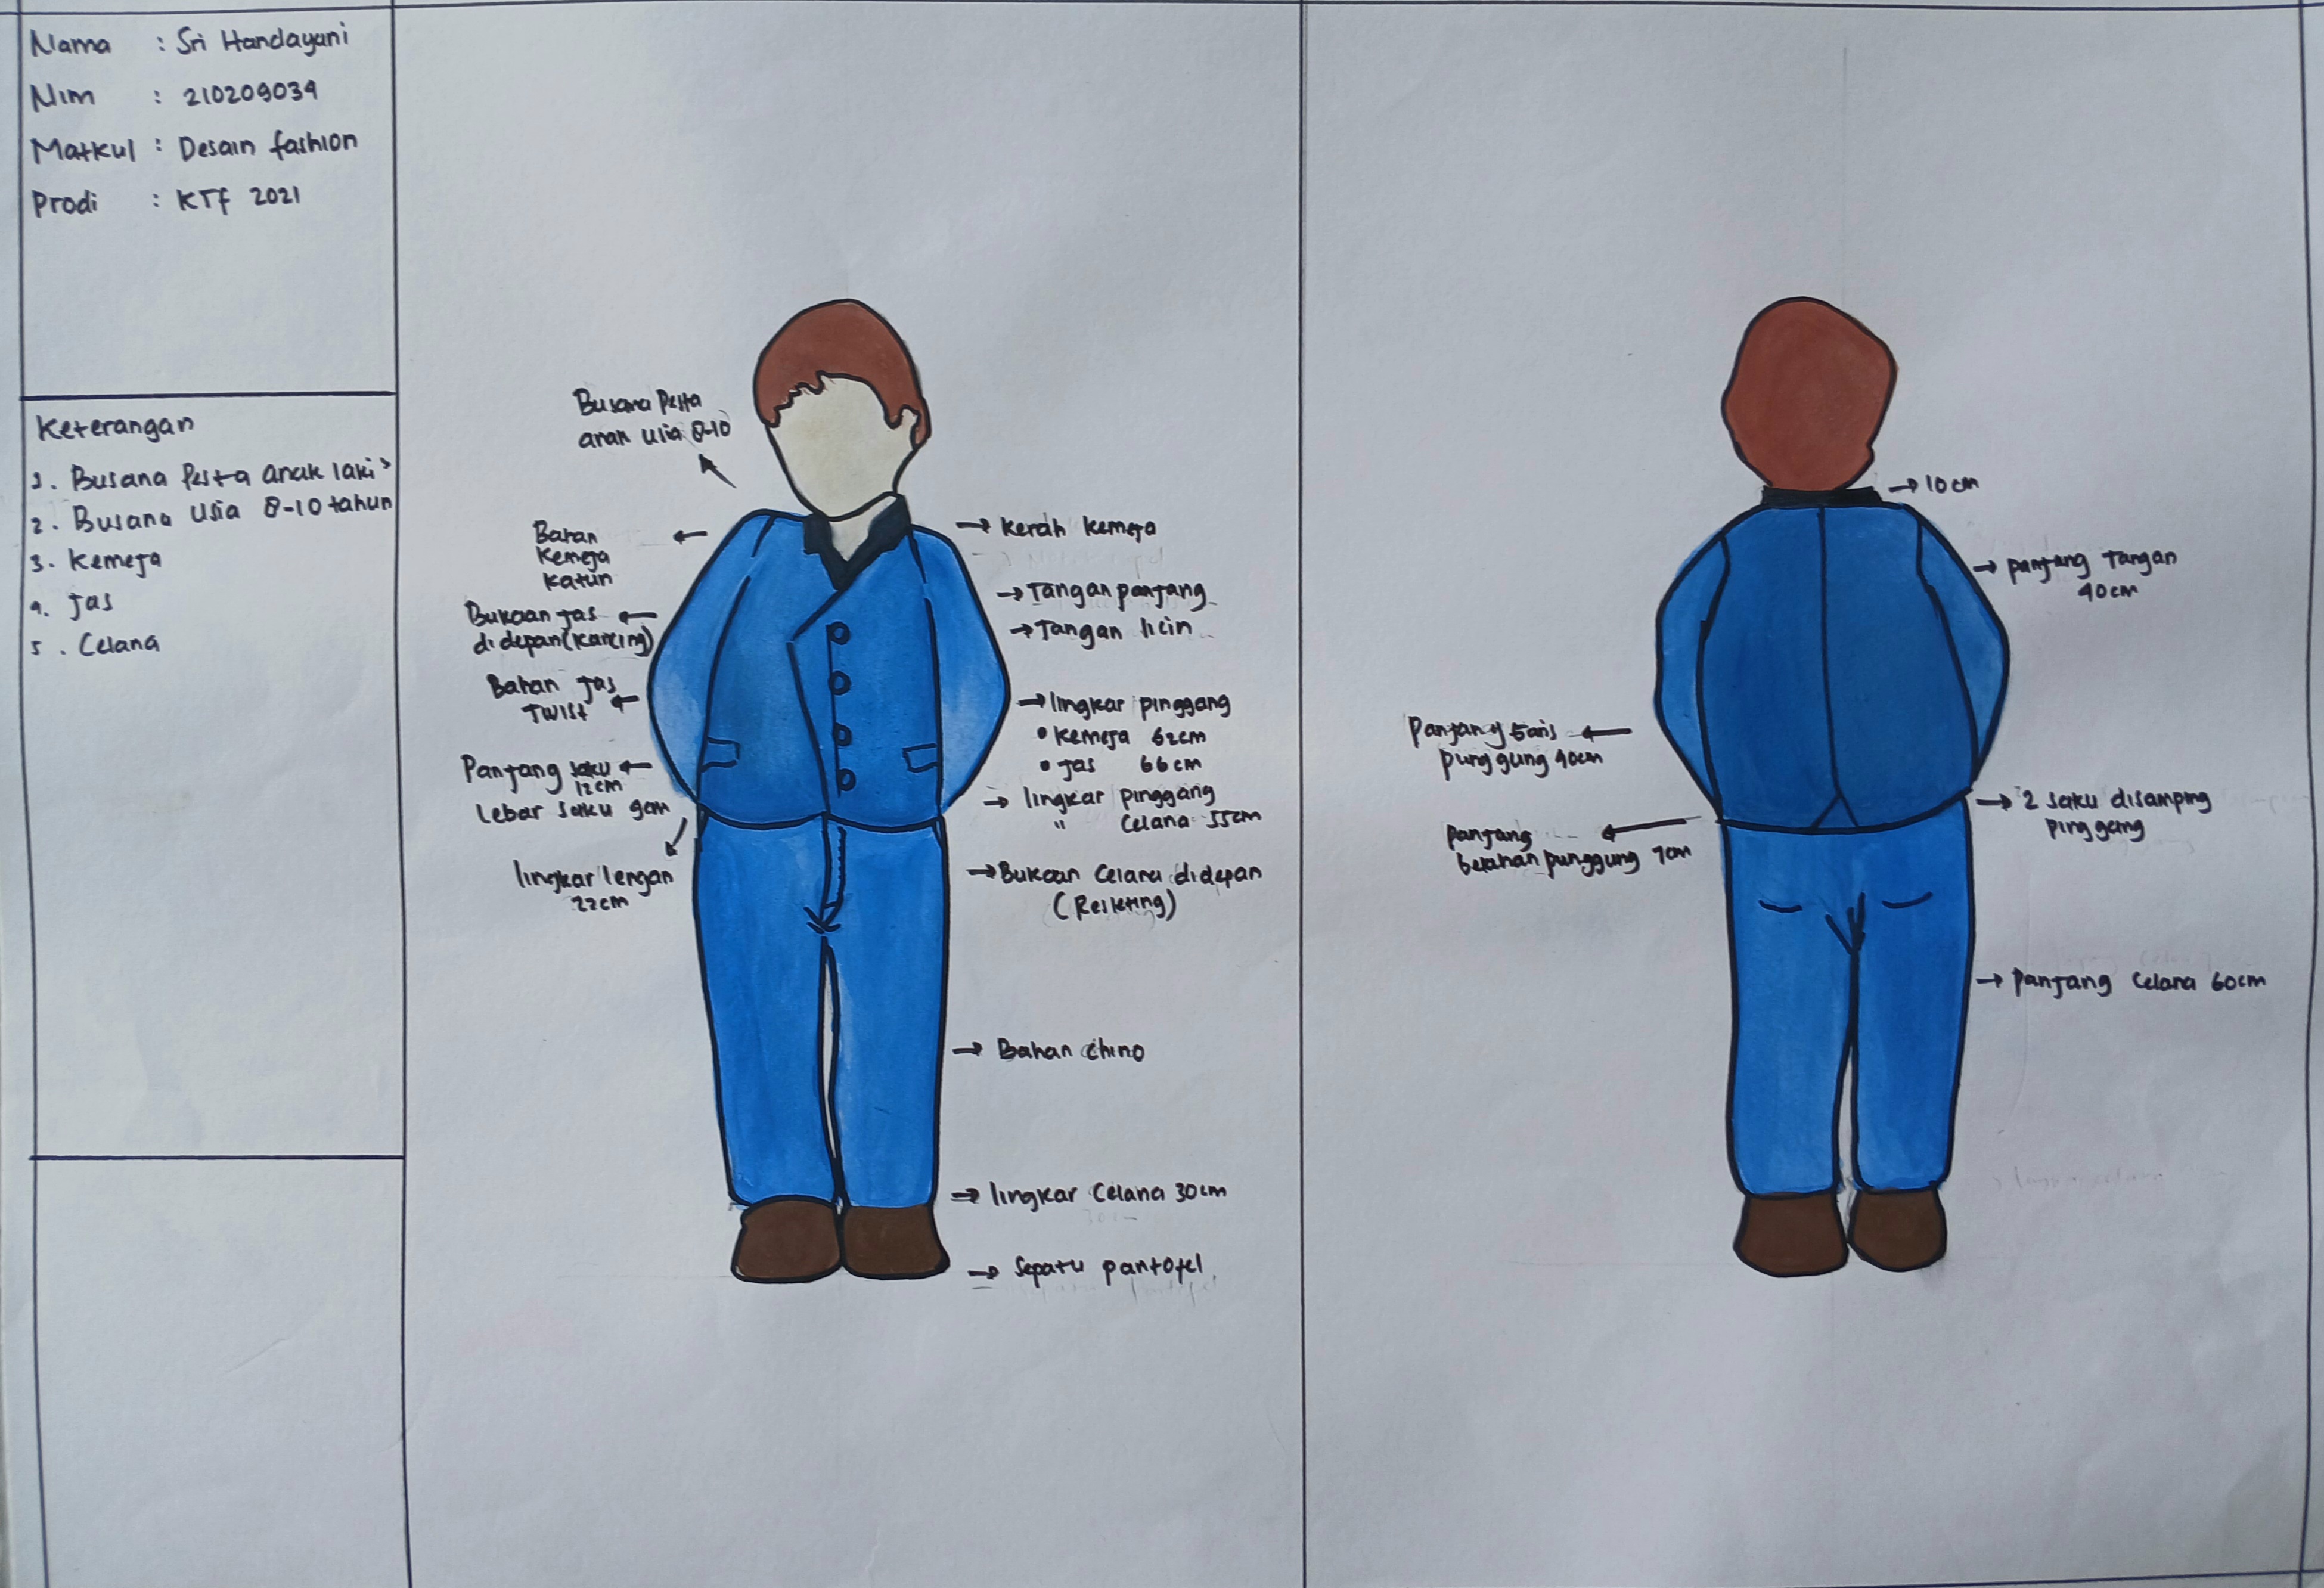 Nama : Sri Handayani
Nim : 210209034
Matkul : Desain fashion
Prodi : KTf 2021
Keterangan
1. Busana Pesta anak laki²
2. Busana Usia 8-10 tahun
3. Kemeja
4. Jas
5. Celana
Busana Pesta
anak usia 8-10
Bahan
Kemeja
Katun
Bukaan Jas
didepan (kancing)
Bahan Jas
Twist
Panjang saku
12cm
lebar saku 9cm
lingkar lengan
22cm
kerah kemeja
Tangan panjang
Tangan licin
lingkar pinggang
• kemeja 62cm
• Jas 66cm
lingkar pinggang
" Celana 55cm
Bukaan Celana didepan
(Resleting)
Bahan chino
lingkar Celana 30cm
Sepatu pantofel
10cm
panjang Tangan
40cm
Panjang garis
punggung 40cm
Panjang
belahan punggung 7cm
2 saku disamping
pinggang
panjang celana 60cm